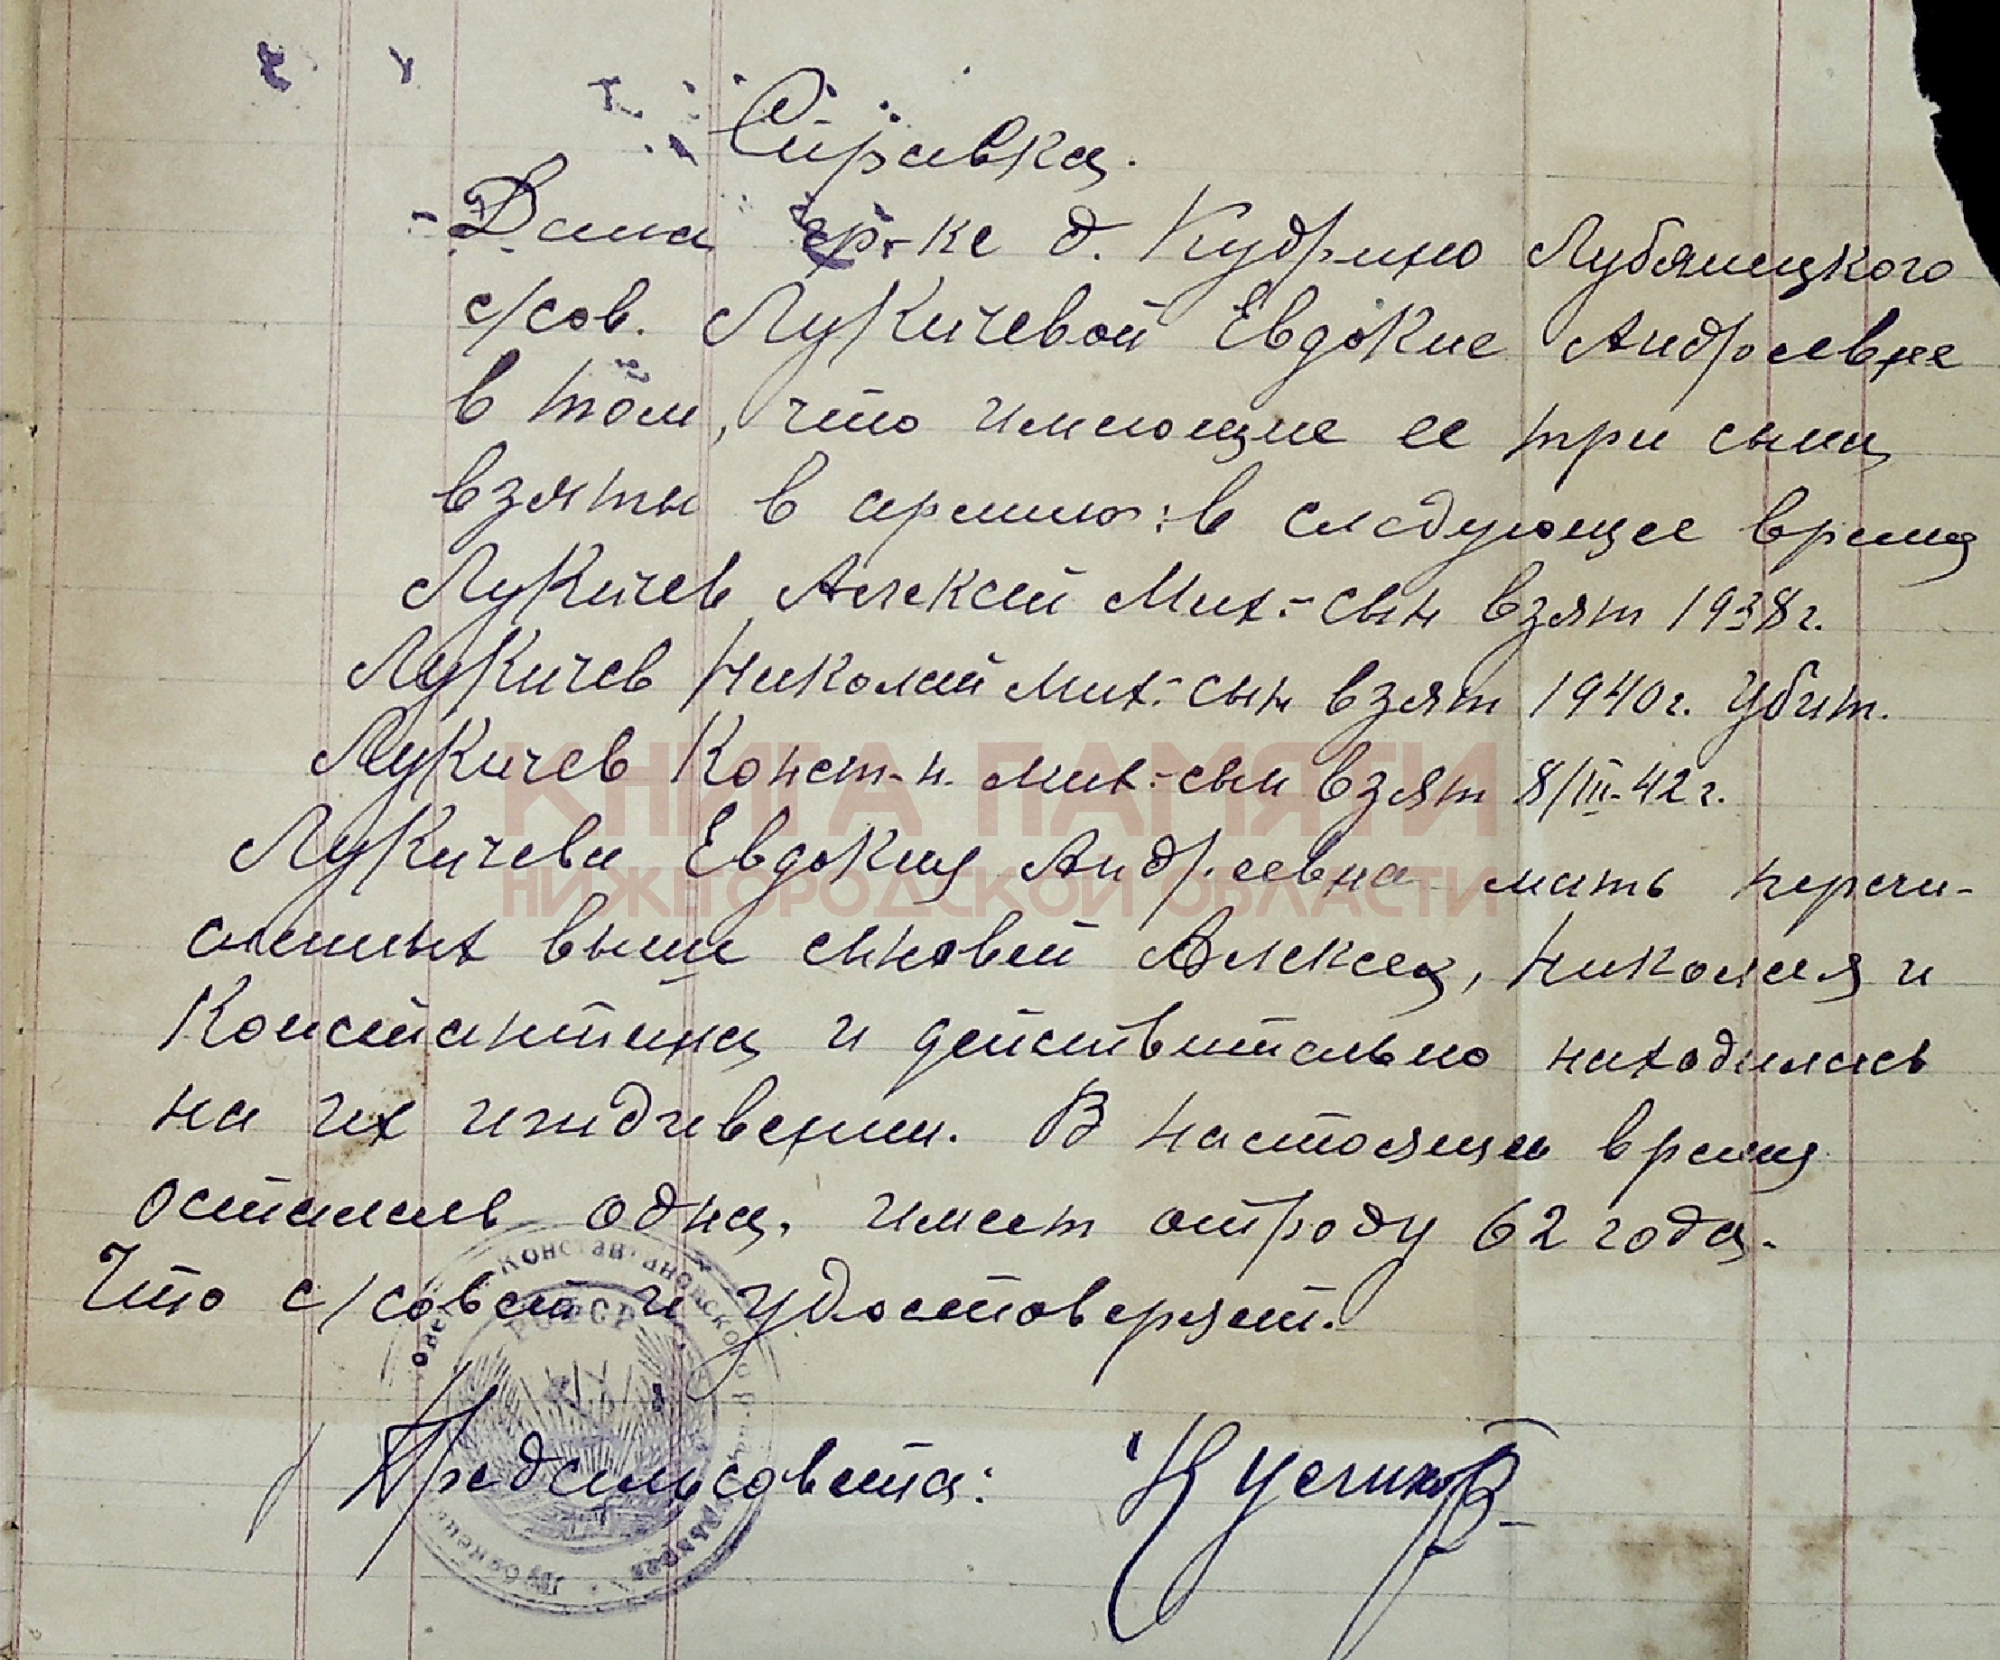 Справка.
Дана гр-ке д. Кудрино Лубянецкого
с/сов. Лукичевой Евдокие Андреевне
в том, что имеющие ее три сына
взяты в армию: в следующее время
Лукичев Алексей Мих.- сын взят 1938 г.
Лукичев Николай Мих.- сын взят 1940 г. убит.
Лукичев Конст-н. Мих.- сын взят 8/III-42 г.
КНИГА ПАМЯТИ
Лукичева Евдокия Андреевна мать перечи-
НИЖЕГОРОДСКОЙ ОБЛАСТИ
сленных выше сыновей Алексея, Николая и
Константина и действительно находилась
на их иждивении. В настоящее время
осталась одна, имеет отроду 62 года.
Что с/совет и удостоверяет.
Константиновского
РСФСР
Предсельсовета: